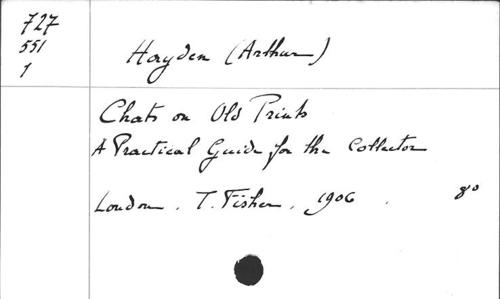 727
551
1
Hayden (Arthur)
Chats on Old Prints
A Practical Guide for the Collector
London. T. Fisher, 1906. 8°